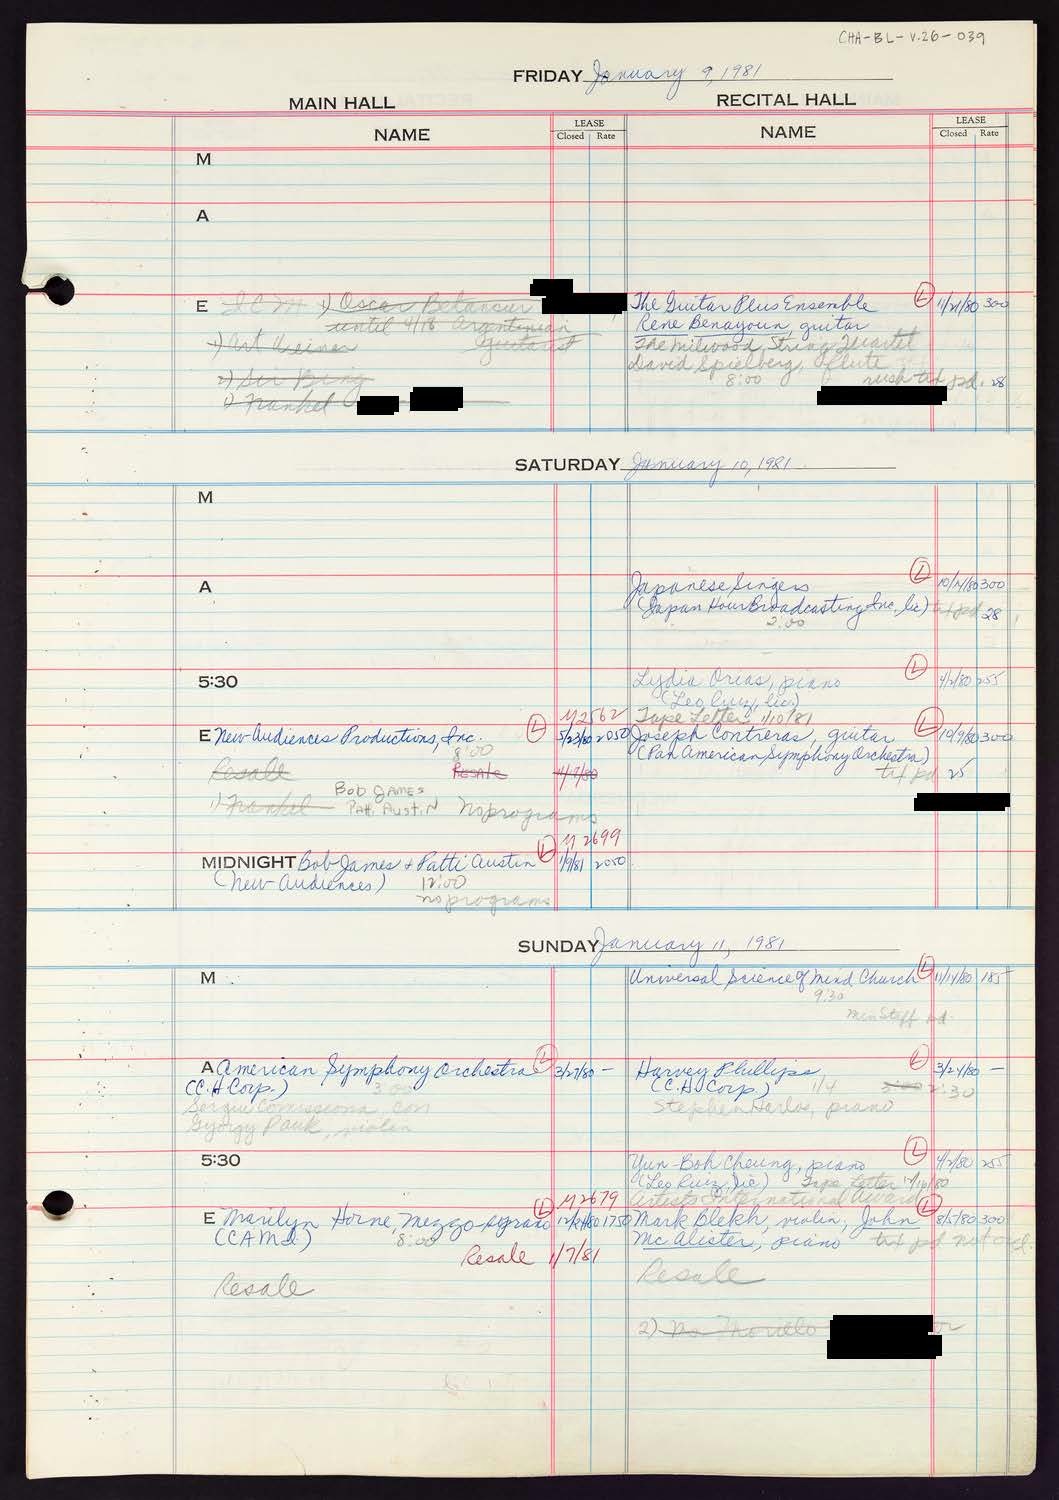 CHA-BL-V.26-039
FRIDAY January 9, 1981
MAIN HALL
RECITAL HALL
NAME
LEASE
Closed Rate
NAME
LEASE
Closed Rate
M
A
E I C M 1) Oscar Betancur
until 4/18 Argentinian
guitarist
Art Weiner
2) Sir Bing
1) Frankel
The Guitar Plus Ensemble L 11/21/80 300
Rene Benayoun, guitar
The Milwood String Quartet
David Spielberg, flute
8:00 rush txt pd. 28
SATURDAY January 10, 1981
M
A
Japanese Singers L 300
(Japan Hour Broadcasting Inc, lic) txt pd 28
2:00
5:30
Lydia Orias, piano L 4/2/80 255
(Leo Ruiz, lic.)
Tape Letter 1/10/81
M2562
E New Audiences Productions, Inc. L 5/23/80 2050
8:00
Resale Resale
1) Frankel Bob James
Patti Austin No programs
Joseph Contreras, guitar L 300
(Pan American Symphony Orchestra)
txt pd 25
M 2699
MIDNIGHT Bob James + Patti Austin L 1/9/81 2050
(New Audiences) 12:00
no programs
SUNDAY January 11, 1981
M
Universal Science of Mind Church L 11/14/80 185
9:30
Min Staff pd.
A American Symphony Orchestra L 3/27/80 —
(C.H. Corp.) 3:00
Sergiu Comissiona, con
György Pauk, violin
Harvey Phillips L 3/24/80 —
(C.H. Corp) 1/4 2:30
Stephen Harlos, piano
5:30
Yun-Boh Cheung, piano L 4/2/80 255
(Leo Ruiz, lic) Tape Letter
Artists International Award
M2679
E Marilyn Horne, Mezzo soprano L 1750
(CAMI.) 8:00
Resale 1/7/81
Resale
Mark Blekh, violin, John L 8/5/80 300
McAlister, piano txt pd not ord.
Resale
2)